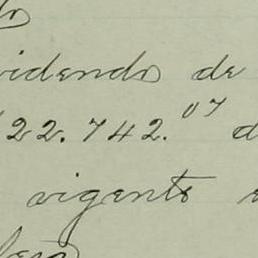 videndo de
22.742.07 d
vigente